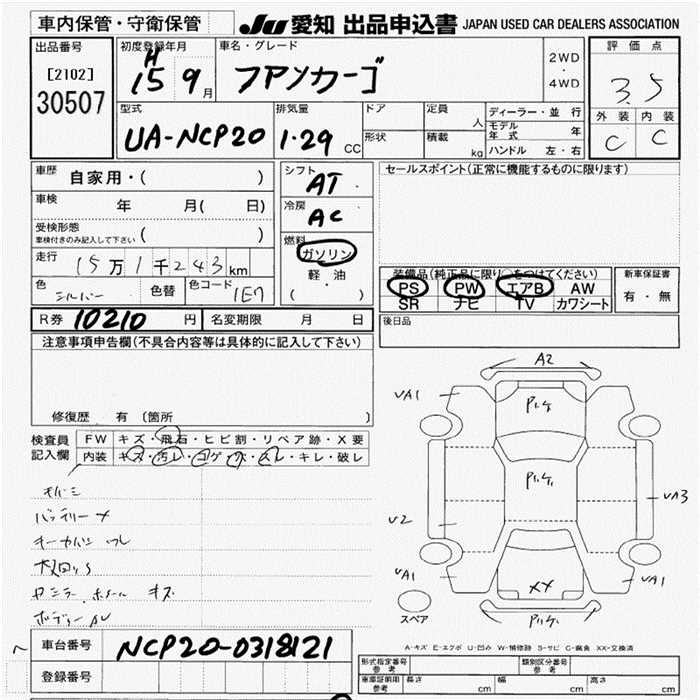 車内保管・守衛保管
JU 愛知 出品申込書 JAPAN USED CAR DEALERS ASSOCIATION
出品番号
[2102]
30507
初度登録年月
H
15 9 月
車名・グレード
ファンカーゴ
2WD
・
4WD
評価点
3.5
外装 内装
C C
型式
UA-NCP20
排気量
1.29 CC
ドア
形状
定員
人
積載
kg
ディーラー・並行
モデル年式 年
ハンドル 左・右
車歴
自家用・( )
車検
年 月( 日)
受検形態
車検付きのみ記入して下さい ( )
走行
15万1千243km
色
シルバー
色替
色コード
1E7
シフト
AT
冷房
AC
燃料
ガソリン
軽油
( ・ )
セールスポイント(正常に機能するものに限ります)
装備品(純正品に限り○をつけてください)
PS PW エアB AW
SR ナビ TV カワシート
新車保証書
有・無
R券 10210 円
名変期限 月 日
後日品
注意事項申告欄(不具合内容等は具体的に記入して下さい)
修復歴 有 〔箇所 〕
検査員
記入欄
FW キズ・飛石・ヒビ割・リペア跡・X要
内装 キズ・汚レ・コゲ・穴・スレ・キレ・破レ
バッテリーメ
キズ
A2
UA1
U2
UA1
UA3
UA1
XX
スペア
A-キズ E-エクボ U-凹み W-補修跡 S-サビ C-腐食 XX-交換済
車台番号
NCP20-0318121
登録番号
形式指定番号
参考
類別区分番号
参考
車庫証明用
参考
長さ cm 幅 cm 高さ cm